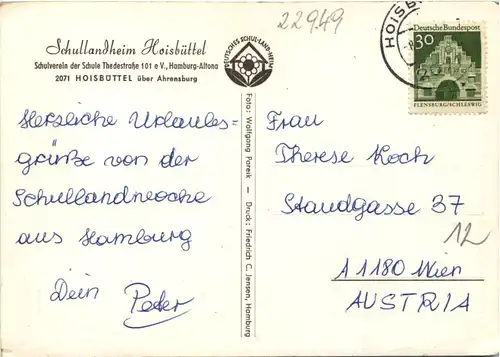 22949
Schullandheim Hoisbüttel
Schulverein der Schule Thedestraße 101 e V., Hamburg-Altona
2071 HOISBÜTTEL über Ahrensburg
DEUTSCHES SCHUL-LAND-HEIM
HOISB
Deutsche Bundespost
30
FLENSBURG/SCHLESWIG
Herzliche Urlaubs=
grüße von der
Schullandwoche
aus Hamburg
Dein Peter
Foto: Wolfgang Pareik — Druck: Friedrich C. Jensen, Hamburg
Frau
Therese Koch
Staudgasse 37
12
A 1180 Wien
AUSTRIA